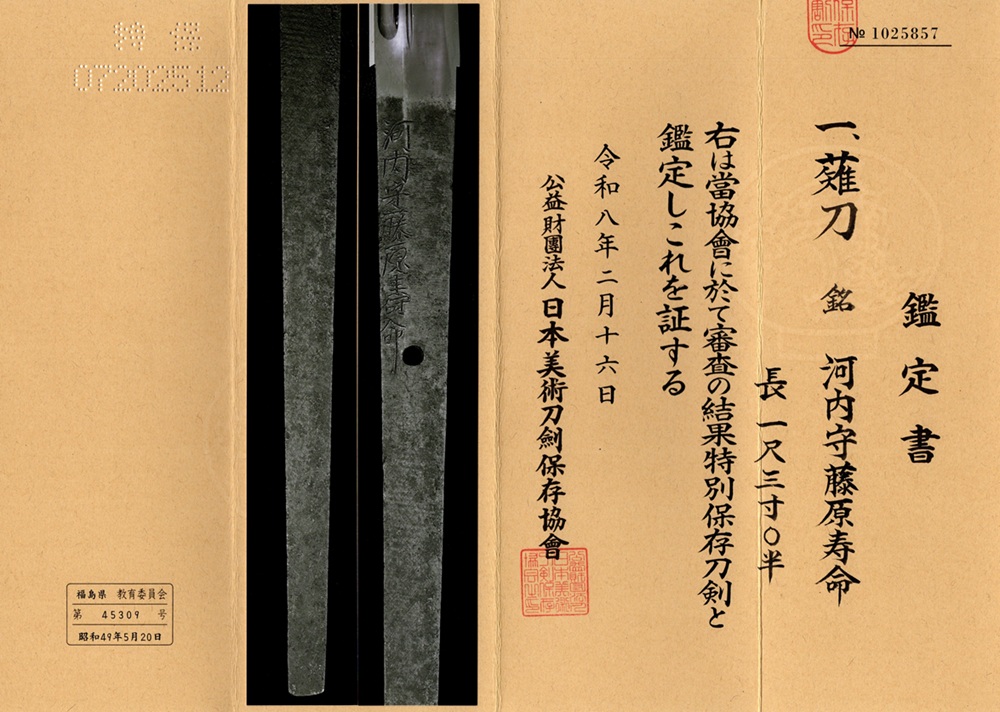 № 1025857
鑑定書
一、薙刀 銘 河内守藤原寿命
長 一尺三寸〇半
右は當協會に於て審査の結果特別保存刀剣と
鑑定しこれを証する
令和八年二月十六日
公益財團法人 日本美術刀劍保存協會
河内守藤原寿命
特保
07202512
福島県 教育委員会
第 45309 号
昭和49年5月20日